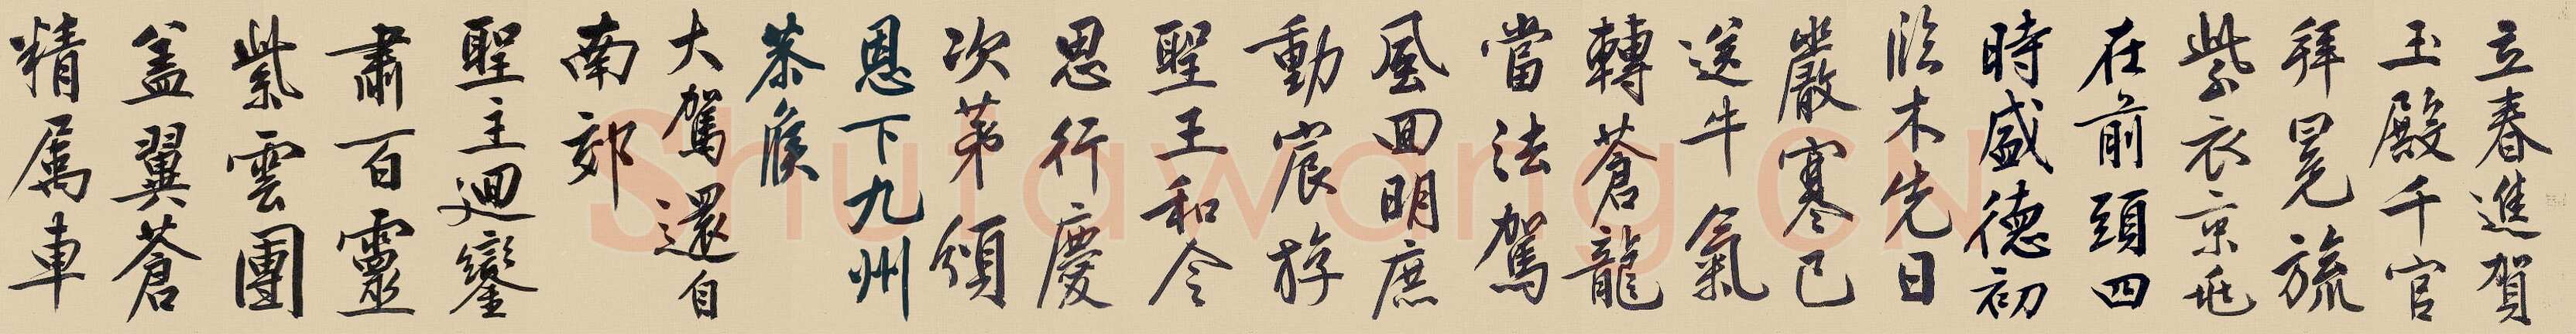 立春進賀
玉殿千官
拜冕旒
紫衣京兆
在前頭四
時盛德初
臨木先日
嚴寒已
送牛氣
轉蒼龍
當法駕
風回明庶
動宸游
聖王和令
思行慶
次第頒
恩下九州
恭候
大駕還自
南郊
聖主迴鑾
肅百靈
紫雲團
蓋翼蒼
精屬車
Shufawang CN